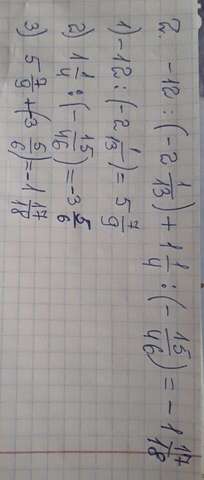 2. -12 : (-2 1/13) + 1 1/4 : (-15/46) = -1 17/18
1) -12 : (-2 1/13) = 5 7/9
2) 1 1/4 : (-15/46) = -3 5/6
3) 5 7/9 + (3 5/6) = -1 17/18